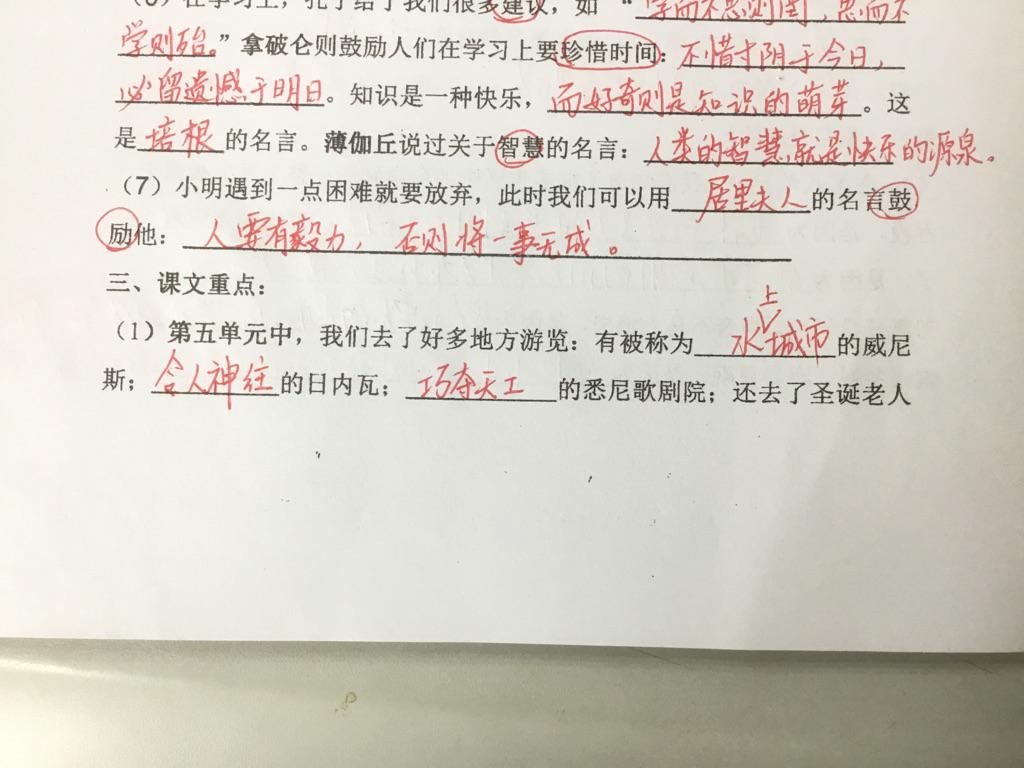 （6）在学习上，孔子给了我们很多建议，如“学而不思则罔，思而不
学则殆。”拿破仑则鼓励人们在学习上要珍惜时间：不惜寸阴于今日，
必留遗憾于明日。知识是一种快乐，而好奇则是知识的萌芽。这
是培根的名言。薄伽丘说过关于智慧的名言：人类的智慧就是快乐的源泉。
（7）小明遇到一点困难就要放弃，此时我们可以用居里夫人的名言鼓
励他：人要有毅力，否则将一事无成。
三、课文重点：
（1）第五单元中，我们去了好多地方游览：有被称为水上城市的威尼
斯；令人神往的日内瓦；巧夺天工的悉尼歌剧院；还去了圣诞老人